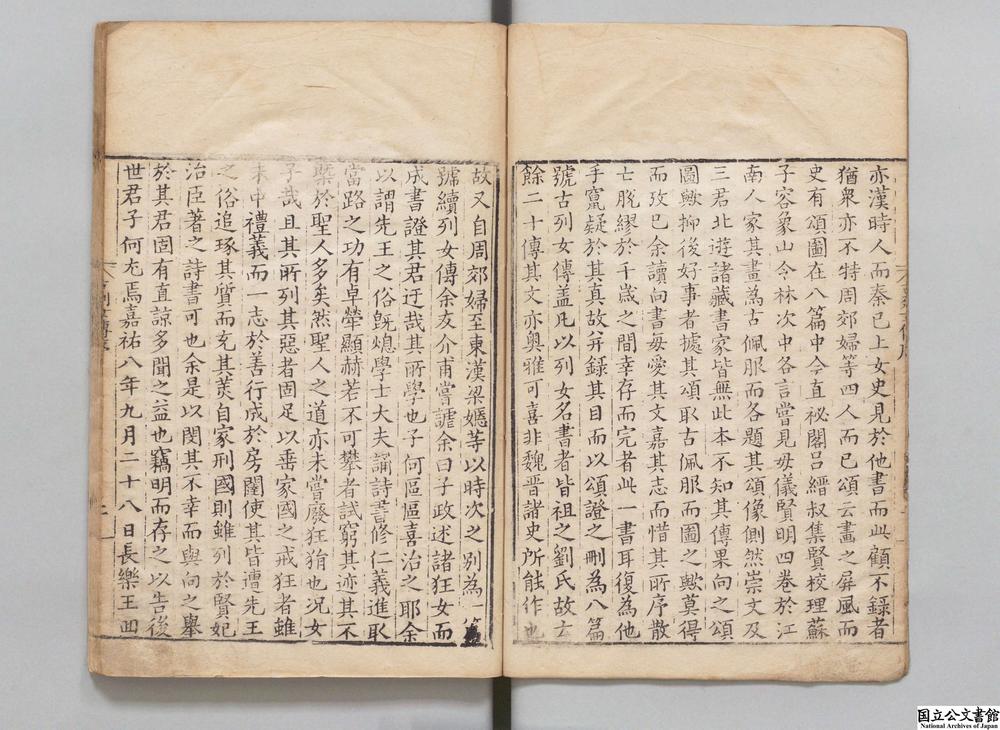 亦漢時人而秦已上女史見於他書而此顧不録者
猶衆亦不特周郊婦等四人而已頌云畫之屏風而
史有頌圖在八篇中今直祕閣吕縉叔集賢校理蘇
子容象山令林次中各言嘗見毋儀賢明四卷於江
南人家其畫為古佩服而各題其頌像側然崇文及
三君北遊諸藏書家皆無此本不知其傳果向之頌
圖歟抑後好事者據其頌取古佩服而圖之歟莫得
而攷已余讀向書毎愛其文嘉其志而惜其所序散
亡脱繆於千歳之間幸存而完者此一書耳復為他
手竄疑於其真故并録其目而以頌證之刪為八篇
號古列女傳盖凡以列女名書者皆祖之劉氏故云
餘二十傳其文亦奥雅可喜非魏晋諸史所能作也
故又自周郊婦至東漢梁嫕等以時次之别為一篇
號續列女傳余友介甫嘗謔余曰子政述諸狂女而
成書證其君迂哉其所學也子何區區喜治之耶余
以謂先王之俗旣熄學士大夫誦詩書修仁義進取
當路之功有卓犖顯赫若不可攀者試窮其迹其不
槩於聖人多矣然聖人之道亦未嘗廢狂狷也况女
子哉且其所列其惡者固足以垂家國之戒狂者雖
未中禮義而一志於善行成於房闥使其皆遭先王
之俗追琢其質而充其美自家刑國則雖列於賢妃
治臣著之詩書可也余是以閔其不幸而與向之舉
於其君固有直諒多聞之益也竊明而存之以告後
世君子何尤焉嘉祐八年九月二十八日長樂王回
国立公文書館
National Archives of Japan